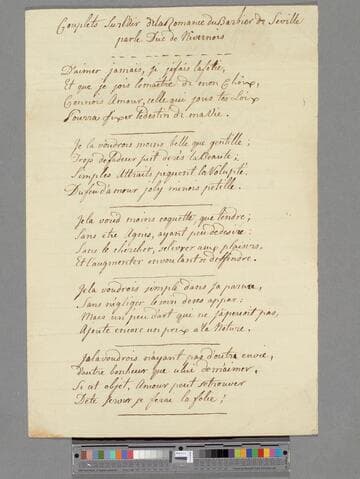 Couplets Sur l'air de la Romance du Barbier de Seville
par le Duc de Nivernois
D'aimer jamais, si je fais la folie,
Et que je sois le maitre de mon Choix,
Connois Amour, celle que sous tes Loix
Pourra fixer le destin de ma Vie.
Je la voudrois moins belle que gentille;
Trop de fadeur suit de près la Beauté;
Simples Attraits piquent la Volupté,
Du feu d'amour joly minois petille.
Je la voud moins coquette que tendre;
Sans être Agnes, ayant peu de desirs;
Sans le chercher, se livrer aux plaisirs,
Et l'augmenter en voulant s'en deffendre.
Je la voudrois simple dans sa parure,
Sans négliger le soin de ses appas:
Mais un peu d'art qui ne s'aperçoit pas,
Ajoute encore un prix a la Nature.
Je la voudrois n'ayant pas d'autre envie,
D'autre bonheur que celui de m'aimer.
Si cet objet, Amour peut se trouver
De te servir je ferai la folie;